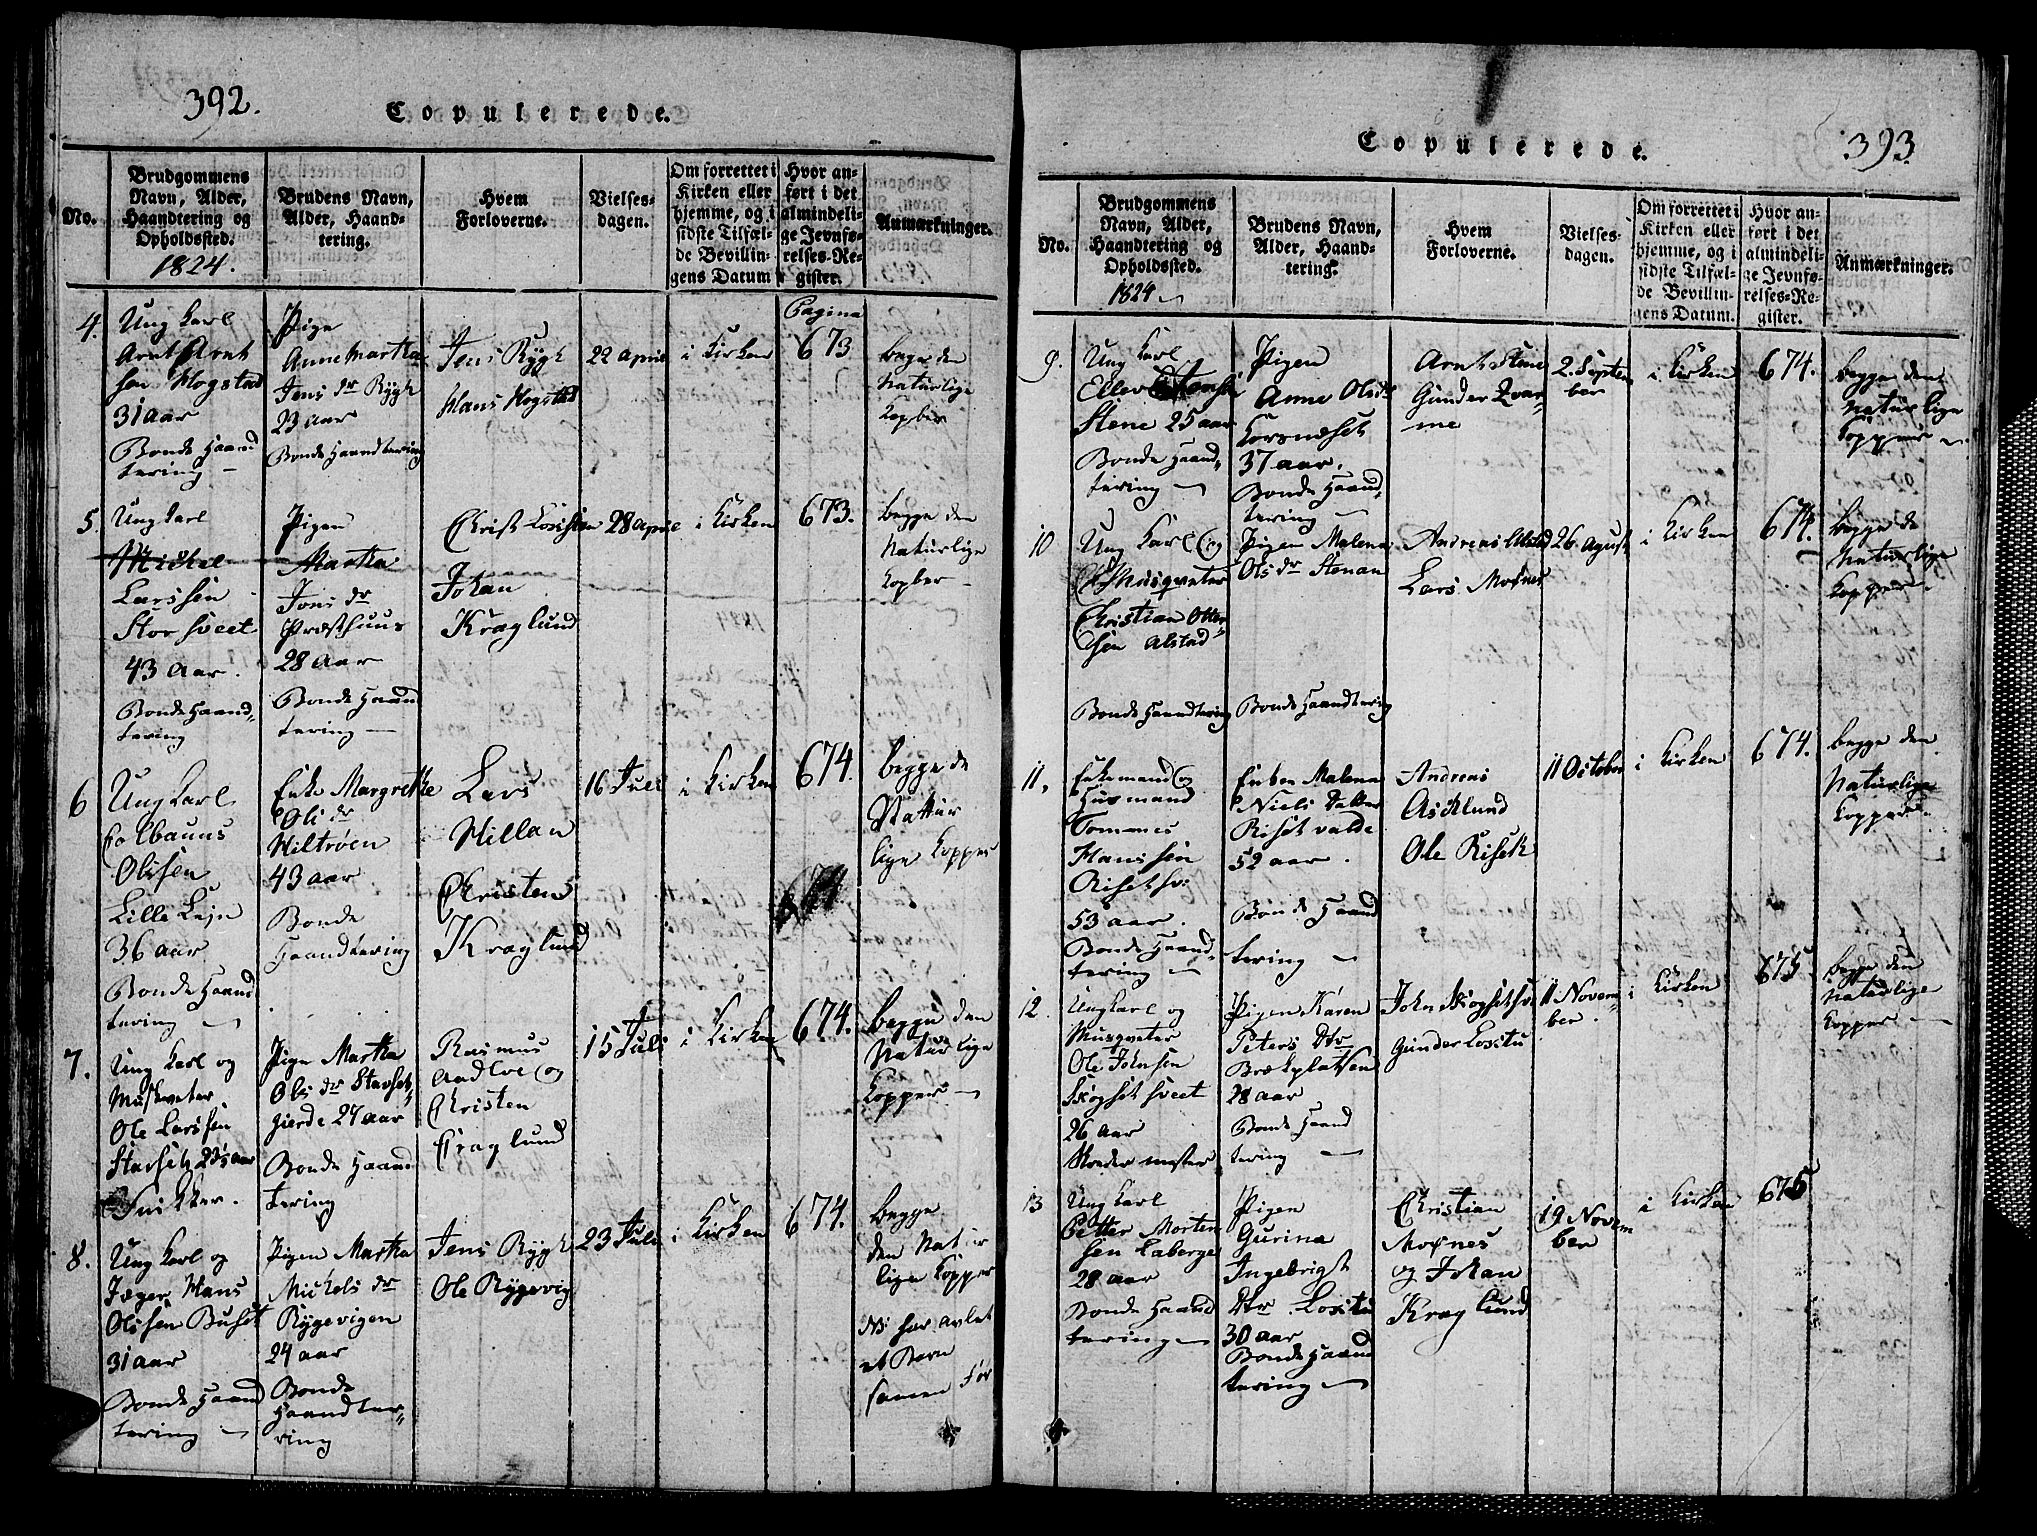 392.
Copulerede.
No.
Brudgommens
Navn, Alder,
Haandtering og
Opholdssted.
1824.
Brudens Navn,
Alder, Haand-
tering.
Hvem
Forloverne.
Vielses-
dagen.
Om forrettet i
Kirken eller
hjemme, og i
sidste Tilfæl-
de Bevillin-
gens Datum
Hvor an-
ført i det
almindeli-
ge Jevnfø-
relses-Re-
gister.
Anmærkninger.
Pagina
4.
Ung Karl
Arnt Arnt
sen Hogstad
31 aar
Bonde Haand
tering —
Pige
Anne Martha
Jens dr Rygh
23 aar
Bonde Haandtering
Jens Rygh
Hans Hogstad
22 April
i Kirken
673
begge den
Naturlige
Kopber
5.
Ung Karl
Michel
Larssen
Storsveet
43 Aar.
Bonde Haand-
tering
Pigen
Martha
Jons dr
Præsthuus
28 Aar
Bonde Haand
tering —
Christ
Johan
Kraglund
28 April
i Kirken
673.
begge den
Naturlige
Kopber —
6
Ung Karl
Olisen
Lille
36 aar
Bonde Haand
tering —
Enke Margrethe
Ols dr
Hiltrøen
43 aar
Bonde
Haandtering
Lars
Hillan
Christen
Kraglund
16 Juli
i Kirken
674.
begge de
Nattur
lige Kopper
7.
Ung Karl og
Muskveter
Ole Larssen
Stavseth 25 aar
Snikker.
Pige Martha
Ols dr Stavset-
gierde 27 aar
Bonde Haand
tering
Rasmus
og
Christen
Kraglund
15 Juli
i Kirken
674.
begge den
Naturlige
Kopper —
8.
Ung Karl og
Jæger Hans
Olssen Buset
31 aar
Bonde Haand
tering —
Pigen Martha
Michels dr
Rygevigen
24 aar
Bonde
Haandter-
ring
Jens Rygh
Ole Rygevig
23 Juli
i Kirken
674.
begge
den Natur
lige Kopper
NB har avlet
et Barn
samen før
393
Copulerede.
No.
Brudgommens
Navn, Alder,
Haandtering og
Opholdssted.
1824
Brudens Navn,
Alder, Haand-
tering.
Hvem
Forloverne.
Vielses-
dagen.
Om forrettet i
Kirken eller
hjemme, og i
sidste Tilfæl-
de Bevillin-
gens Datum.
Hvor an-
ført i det
almindeli-
ge Jevnfø-
relses-Re-
gister.
Anmærkninger.
9.
Ung Karl
Ellev
Stene 25 aar
Bonde Haand-
tering —
Pigen
Anne Olsdr
Korsnæset
37 aar.
Bonde Haand-
tering —
Arnt Stene
Gunder Qvar-
me
2. Septem
ber
i Kirken
674.
begge den
Naturlige
Kopper
10
Ung Karl og
Musqveter
Christian Otter
sen Alstad
Bonde Haandtering
Pigen Malena
Ols dr Stenan
Bonde Haandtering
Andreas Alstad
Lars Moxnes
26 Agust
i Kirken
674.
begge de
Naturlige
Kopper.
11.
Enkemand og
Husmand
Tommes
Hanssen
Risetsv:
53 aar.
Bonde Haand-
tering —
Enken Malena
Niels Datter
Riset valde
52 aar.
Bonde Haand
tering —
Andreas
Aschlund
Ole Riseth
11 October
i Kirken
674.
begge den
Naturlige
Kopper.
12.
Ung Karl og
Musqveter
Ole Johnsen
Skogset sveet
26 aar
Skreder mester
Pigen Karen
Peters Dtr
Brekplatsen
28 aar
Bonde Haand
tering —
John Skogsetsv.
Gunder Loxitu
11 Novem
ber.
i Kirken
675.
begge den
Naturlige
Kopper —
13
Ung Karl
Petter Morten
sen Laberge
28 aar
Bonde Haand
tering —
Pigen
Gurina
Ingebrigt
Dtr. Loxitu
30 aar
Bonde Haand
tering —
Christian
Moxnes
og Johan
Kraglund
19 Novem
ber
i Kirken
675